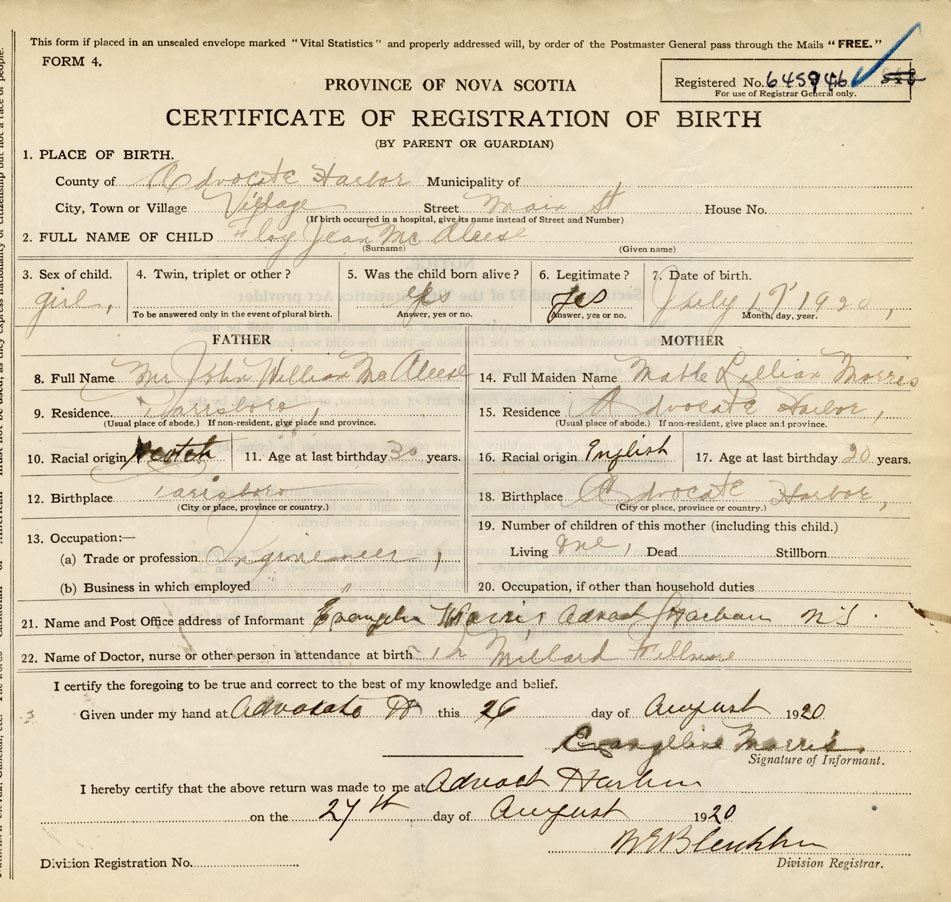 This form if placed in an unsealed envelope marked "Vital Statistics" and properly addressed will, by order of the Postmaster General pass through the Mails "FREE."
FORM 4.
Registered No. 645946
For use of Registrar General only.
PROVINCE OF NOVA SCOTIA
CERTIFICATE OF REGISTRATION OF BIRTH
(BY PARENT OR GUARDIAN)
1. PLACE OF BIRTH.
County of Advocate Harbor Municipality of
City, Town or Village Village Street Main St House No.
(If birth occurred in a hospital, give its name instead of Street and Number)
2. FULL NAME OF CHILD Jean Mc Aleese
(Surname) (Given name)
3. Sex of child. 4. Twin, triplet or other? 5. Was the child born alive? 6. Legitimate? 7. Date of birth.
girl, yes yes July 19 1920,
To be answered only in the event of plural birth. Answer, yes or no. Answer, yes or no. Month, day, year.
FATHER
8. Full Name Mr John William McAleese
9. Residence. Parisboro,
(Usual place of abode.) If non-resident, give place and province.
10. Racial origin Scotch 11. Age at last birthday 30 years.
12. Birthplace Parisboro
(City or place, province or country.)
13. Occupation:—
(a) Trade or profession
(b) Business in which employed
MOTHER
14. Full Maiden Name Mable Lillian Morris
15. Residence Advocate Harbor,
(Usual place of abode.) If non-resident, give place and province.
16. Racial origin English 17. Age at last birthday 20 years.
18. Birthplace Advocate Harbor,
(City or place, province or country.)
19. Number of children of this mother (including this child.)
Living One, Dead Stillborn
20. Occupation, if other than household duties
21. Name and Post Office address of Informant Morris Advocat Harbour N S
22. Name of Doctor, nurse or other person in attendance at birth Millard Fillmore
I certify the foregoing to be true and correct to the best of my knowledge and belief.
Given under my hand at Advocate H this 26 day of August 1920
Evangeline Morris
Signature of Informant.
I hereby certify that the above return was made to me at Advocat Harbor
on the 27th day of August 1920
Division Registration No. Division Registrar.